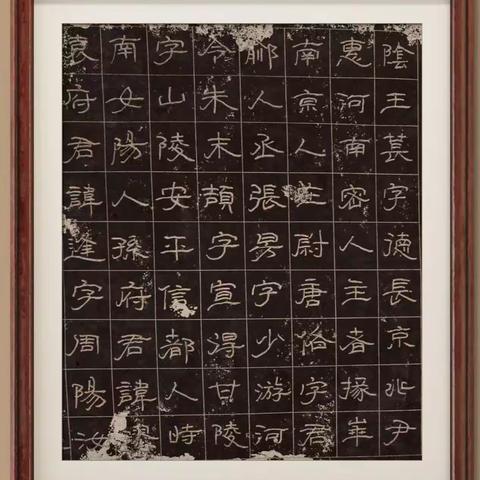 袁府君諱逢字周陽汝
南女陽人孫府君諱
字山陵安平信都人時
令朱末頡字宣得甘陵
鄃人丞張昉字少游河
南京人左尉唐佑字君
惠河南密人主者掾華
陰王萇字德長京兆尹